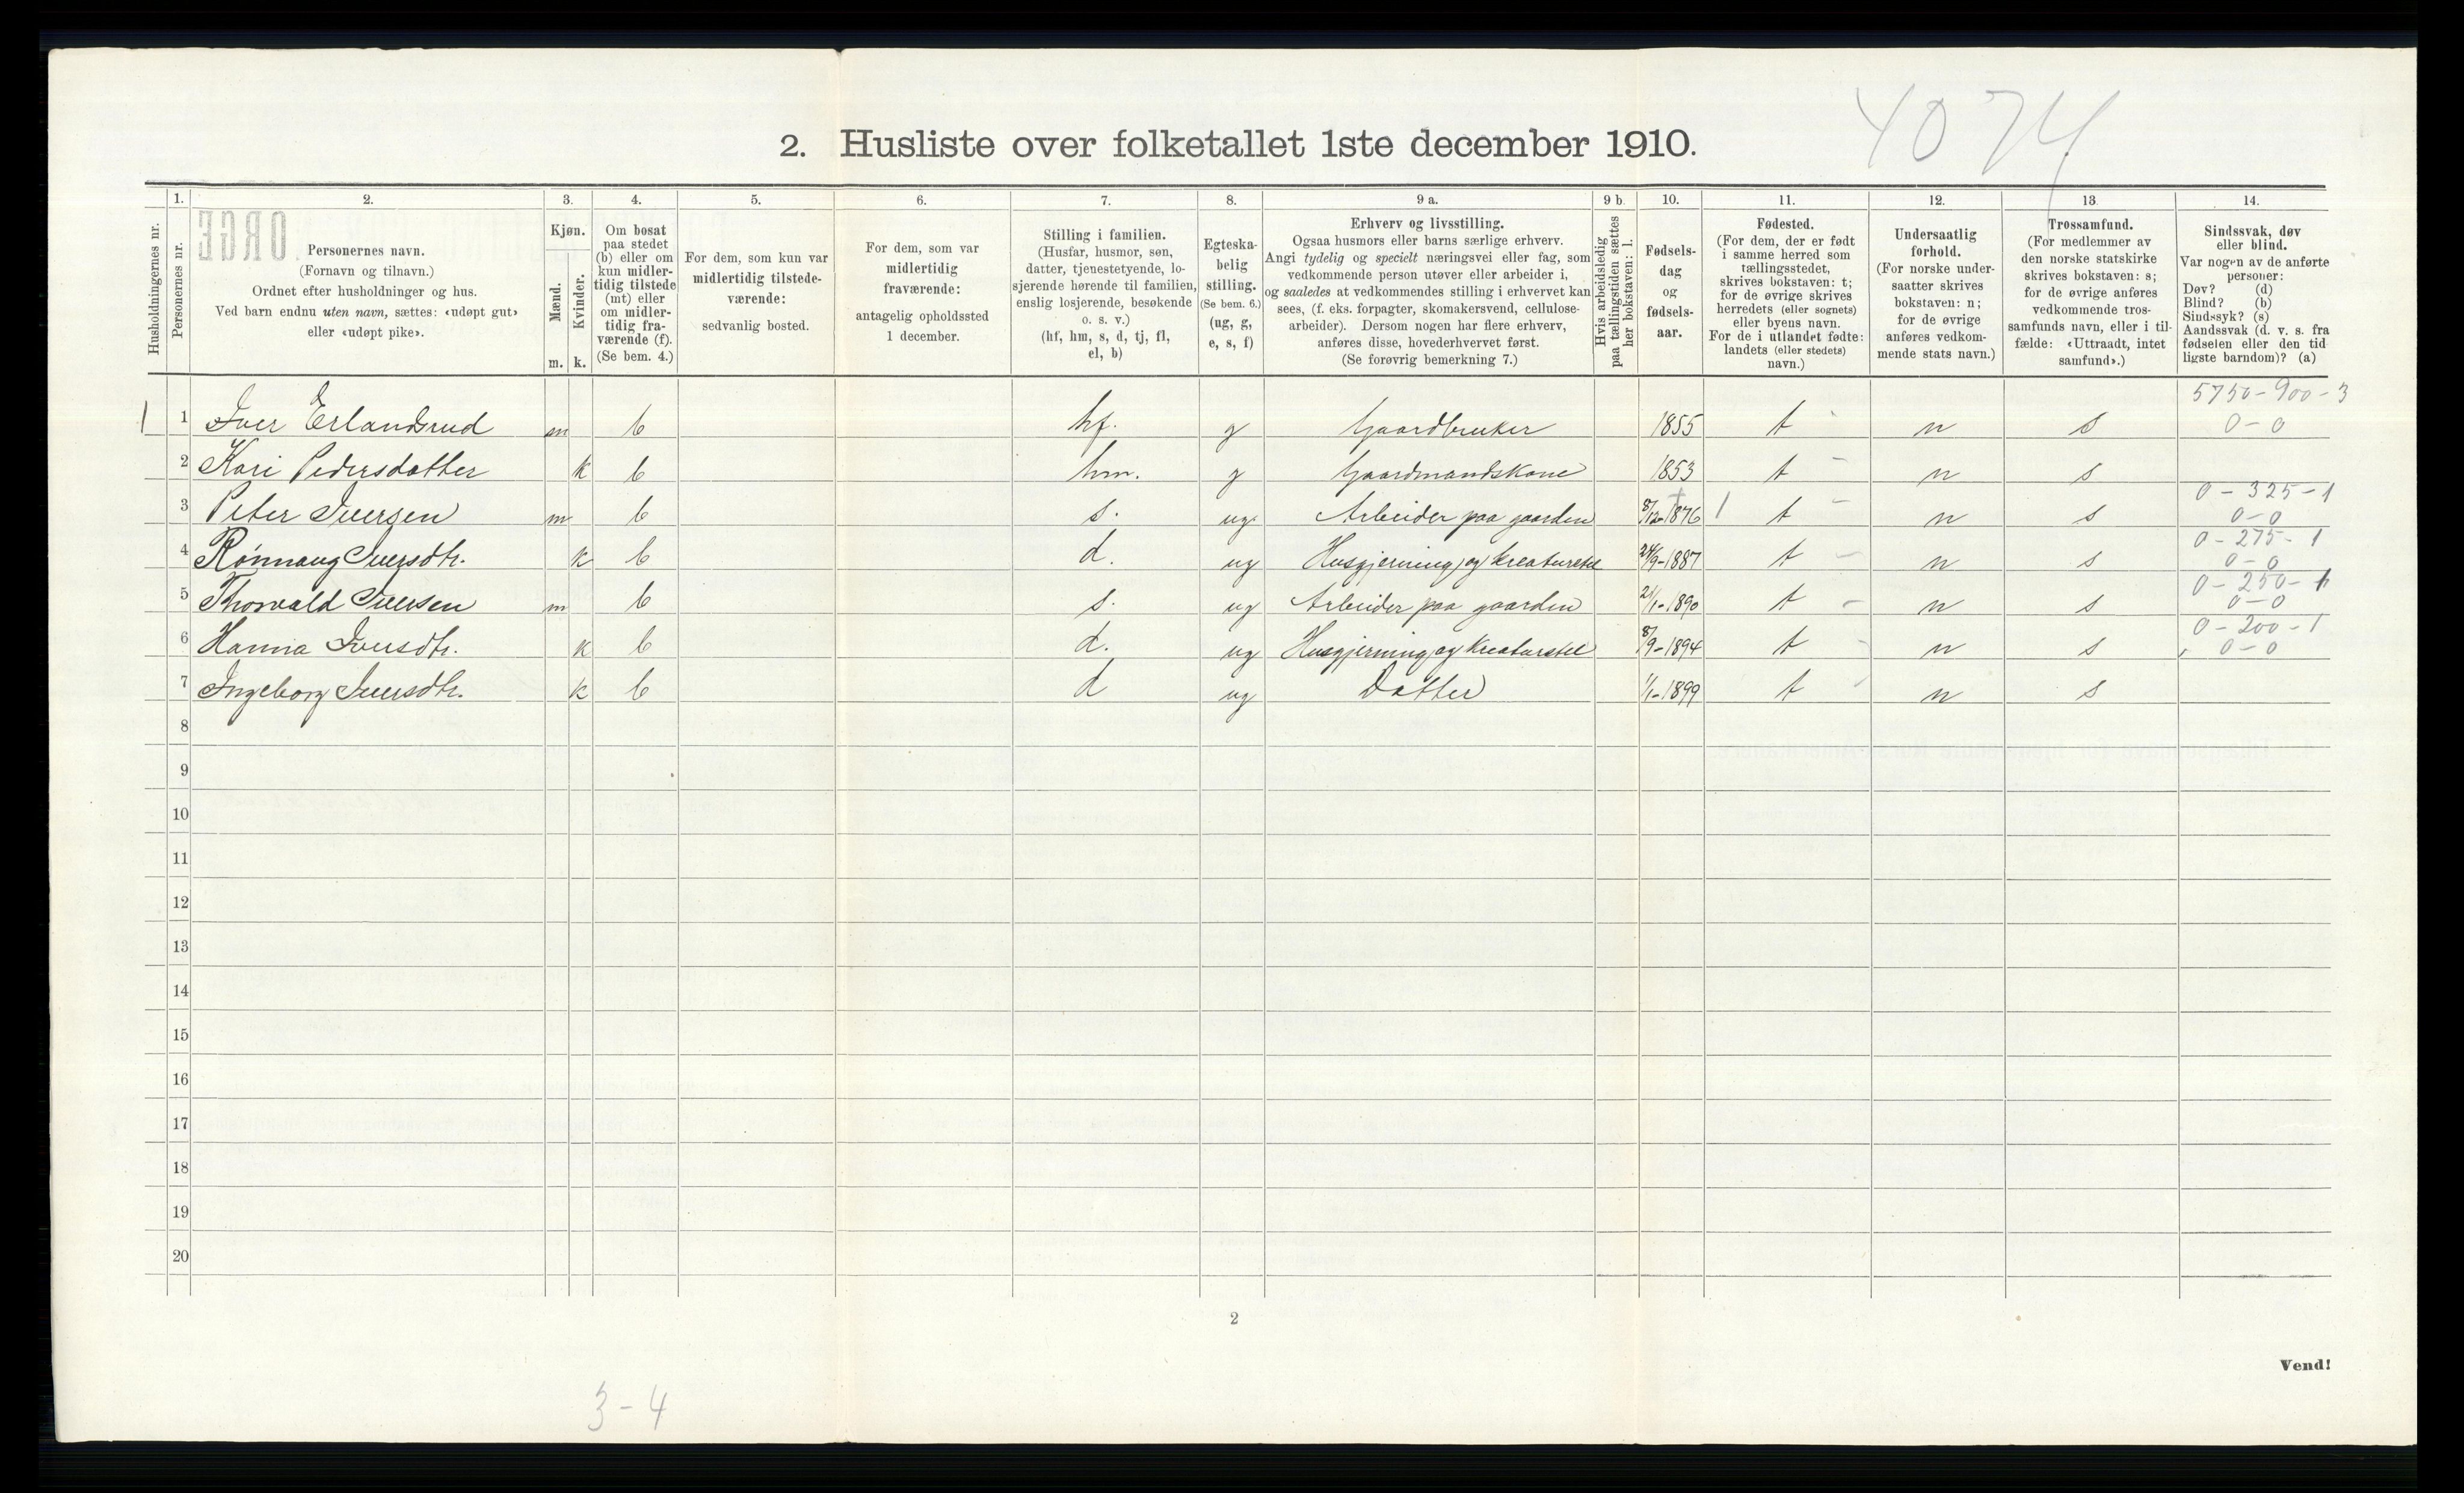 4074
2. Husliste over folketallet 1ste december 1910.
Husholdningernes nr.
1. Personernes nr.
2. Personernes navn.
(Fornavn og tilnavn.)
Ordnet efter husholdninger og hus.
Ved barn endnu uten navn, sættes: «udøpt gut»
eller «udøpt pike».
3. Kjøn.
Mænd. m.
Kvinder. k.
4. Om bosat
paa stedet
(b) eller om
kun midler-
tidig tilstede
(mt) eller
om midler-
tidig fra-
værende (f).
(Se bem. 4.)
5. For dem, som kun var
midlertidig tilstede-
værende:
sedvanlig bosted.
6. For dem, som var
midlertidig
fraværende:
antagelig opholdssted
1 december.
7. Stilling i familien.
(Husfar, husmor, søn,
datter, tjenestetyende, lo-
sjerende hørende til familien,
enslig losjerende, besøkende
o. s. v.)
(hf, hm, s, d, tj, fl,
el, b)
8. Egteska-
belig
stilling.
(Se bem. 6.)
(ug, g,
e, s, f)
9 a. Erhverv og livsstilling.
Ogsaa husmors eller barns særlige erhverv.
Angi tydelig og specielt næringsvei eller fag, som
vedkommende person utøver eller arbeider i,
og saaledes at vedkommendes stilling i erhvervet kan
sees, (f. eks. forpagter, skomakersvend, cellulose-
arbeider). Dersom nogen har flere erhverv,
anføres disse, hovederhvervet først.
(Se forøvrig bemerkning 7.)
9 b. Hvis arbeidsledig
paa tællingstiden sættes
her bokstaven: l.
10. Fødsels-
dag
og
fødsels-
aar.
11. Fødested.
(For dem, der er født
i samme herred som
tællingsstedet,
skrives bokstaven: t;
for de øvrige skrives
herredets (eller sognets)
eller byens navn.
For de i utlandet fødte:
landets (eller stedets)
navn.)
12. Undersaatlig
forhold.
(For norske under-
saatter skrives
bokstaven: n;
for de øvrige
anføres vedkom-
mende stats navn.)
13. Trossamfund.
(For medlemmer av
den norske statskirke
skrives bokstaven: s;
for de øvrige anføres
vedkommende tros-
samfunds navn, eller i til-
fælde: «Uttraadt, intet
samfund».)
14. Sindssvak, døv
eller blind.
Var nogen av de anførte
personer:
Døv? (d)
Blind? (b)
Sindssyk? (s)
Aandssvak (d. v. s. fra
fødselen eller den tid
ligste barndom)? (a)
5750-900-3
1 1 Iver Erlandsrud m b hf. g Gaardbruker 1855 t n s 0-0
2 Kari Pedersdatter k b hm. g Gaardmandskone 1853 t n s
0-325-1
3 Peter Iversen m b s. ug. Arbeider paa gaarden 8/12-1876 1 t n s 0-0
0-275-1
4 Rönnaug Iversdtr. k b d. ug Husgjerning og kreaturstel 24/9-1887 t n s 0-0
0-250-1
5 Thorvald Iversen m b s. ug Arbeider paa gaarden 21/1-1890 t n s 0-0
0-200-1
6 Hanna Iversdtr. k b d. ug Husgjerning og kreaturstel 8/9-1894 t n s 0-0
7 Ingeborg Iversdtr. k b d ug Datter 1/1-1899 t n s
8
9
10
11
12
13
14
15
16
17
18
19
20
2
Vend!
3-4